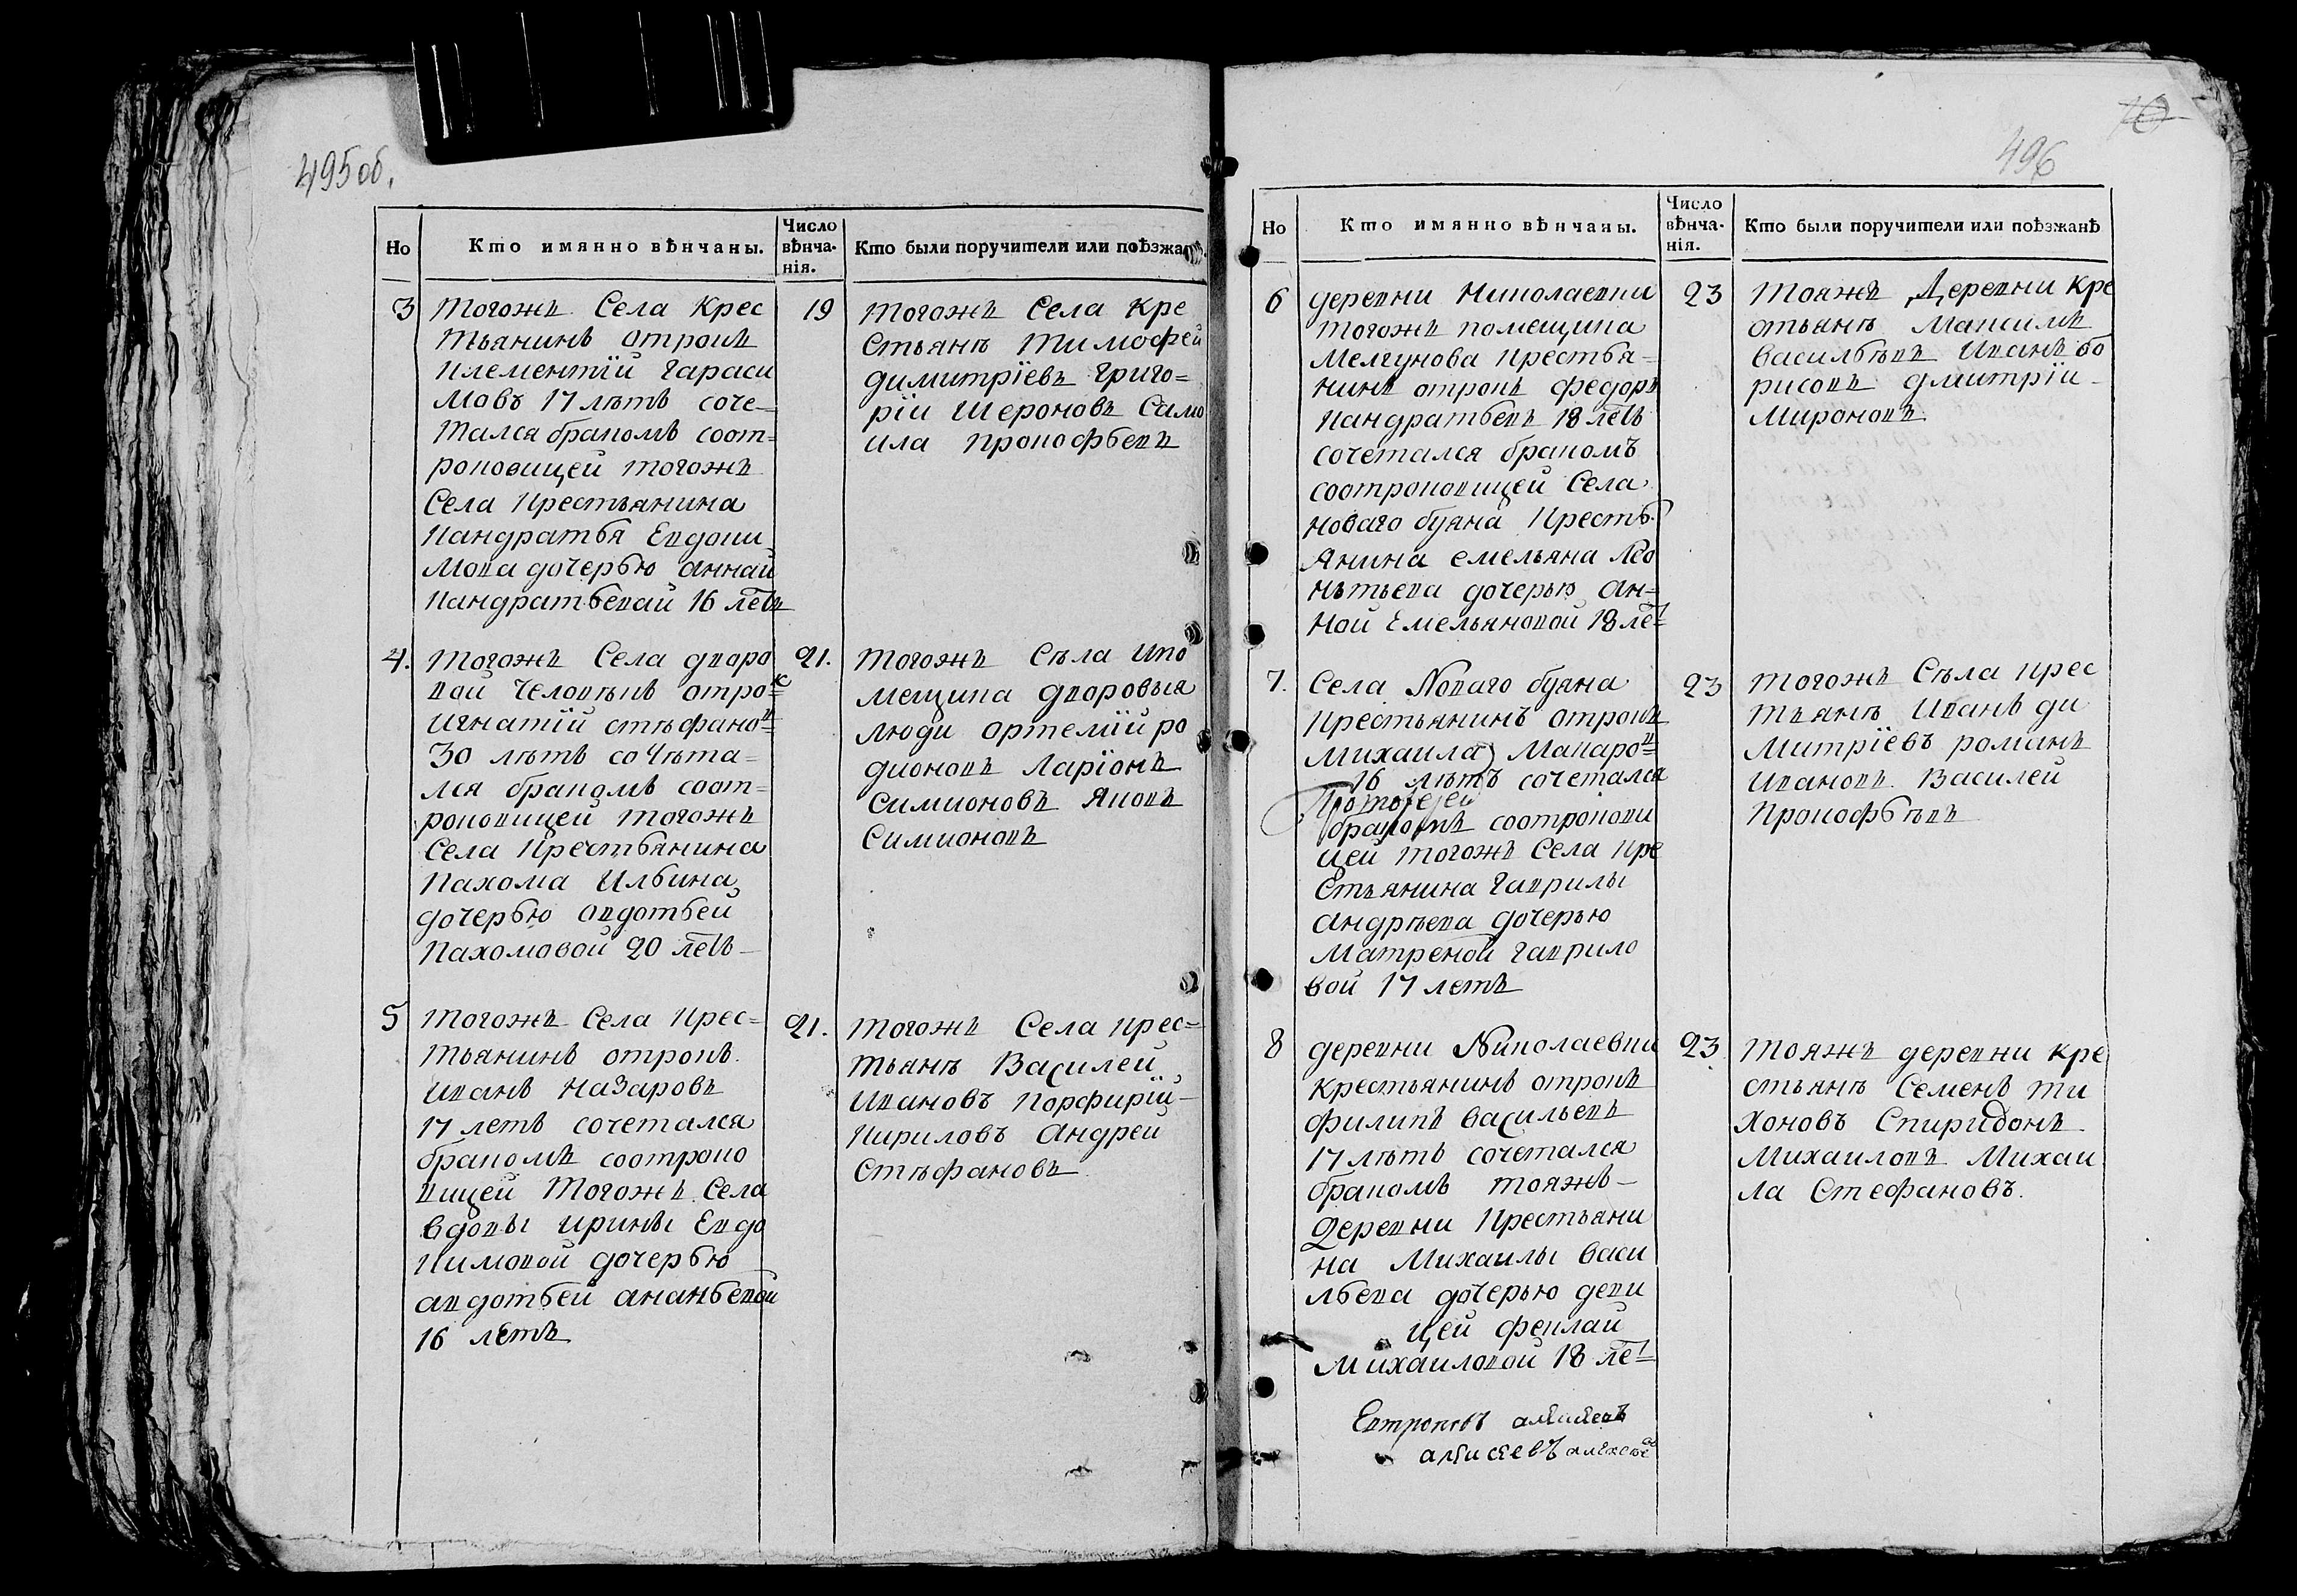 495 об.
Но
Кто имянно вѣнчаны.
Число вѣнча-нія.
Кто были поручители или поѣзжа
3
Тогожъ Села Крес
тьянинъ отрокъ
Клементїй Гараси
мовъ 17 лѣтъ соче=
тался бракомъ соот=
роковицей тогожъ
Села Крестьянина
Кандратья Евдоки
мова дочерью аннай
Кандратьевай 16 летъ
19
тогожъ Села Кре
стьянъ Тимофей
димитрїевъ Григо=
рїи Шероновъ Само
ила Прокофьевъ
4.
Тогожъ Села дворо
вой Человѣкъ отрок
Игнатїй стѣфанов
30 лѣтъ сочѣта=
лся бракомъ соот=
роковицей тогожъ
Села Крестьянина
Пахома Ильина
дочерью авдотьей
Пахомовой 20 летъ
21.
Тогожъ Сѣла и по
мещика дворовыя
люди Артемїй ро
дионовъ Ларїонъ
Симионовъ Яковъ
Симионовъ
5
Тогожъ Села Крес=
тьянинъ отрокъ
Иванъ Назаровъ
17 летъ сочетался
бракомъ соотроко
вицей Тогожъ Села
вдовы ирины Евдо
кимовой дочерью
авдотьей ананьевой
16 летъ
21.
Тогожъ Села крес=
тьянъ Василей
Ивановъ Порфирїй
Кириловъ Андреи
Стѣфановъ
496
10
Но
Кто имянно вѣнчаны.
Число вѣнча-нія.
Кто были поручители или поѣзжанѣ
6
деревни Николаевки
тогожъ помещика
Мелгунова крестья=
нинъ отрокъ Федоръ
Кандратьевъ 18 летъ
сочетался бракомъ
соотроковицей Села
новаго буяна Кресть
янина емельяна Лео
нтьева дочерью ан=
ной Емельяновой 18 ле
23
Тояжъ Деревни кре
стьянъ Максимъ
Васильѣвъ Иванъ бо
рисовъ дмитрїи
Мироновъ
7.
Села Новаго буяна
Крестьянинъ отрокъ
Михаила Макаров
16 лѣтъ сочетался
Протоїерей
бракомъ соотрокови
цей тогожъ Села кре
стьянина Гаврилы
андрѣева дочерью
Матреной Гаврило
вой 17 летъ
23
Тогожъ Сѣла крес
тьянъ Иванъ ди
митрїевъ романъ
Ивановъ Василей
Прокофьѣвъ
8
деревни Николаевки
крестьянинъ отрокъ
филипъ Васильевъ
17 лѣтъ сочетался
бракомъ тояжъ
Деревни Крестьяни
на Михаилы Васи
льева дочерью деви
цей феклай
Михаиловой 18 ле
23
Тояжъ деревни кре
стьянъ Семенъ Ти
хоновъ Спиридонъ
Михаиловъ Михаи
ла Стефановъ.